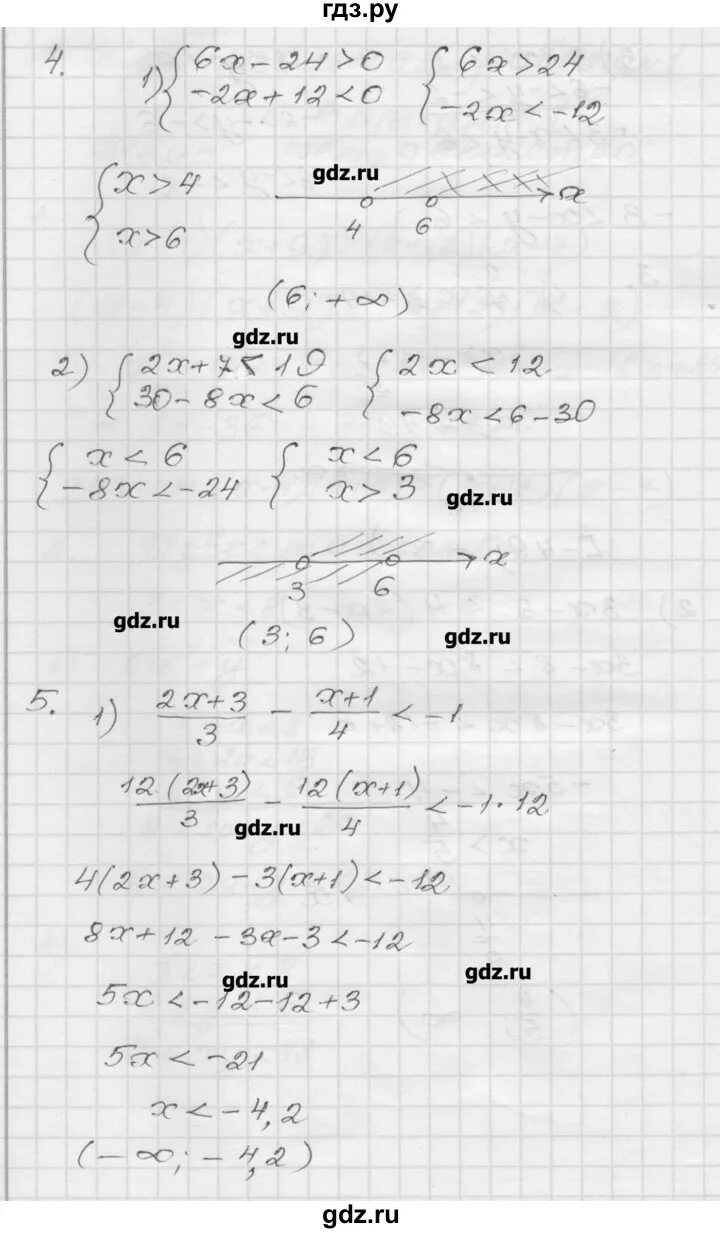 гдз.ру
4. 1) { 6x - 24 > 0 { 6x > 24
-2x + 12 < 0 -2x < -12
gdz.ru
{ x > 4
x > 6
4 6 x
(6; +∞)
gdz.ru
2) { 2x + 7 < 19 { 2x < 12
30 - 8x < 6 -8x < 6 - 30
{ x < 6 { x < 6
-8x < -24 x > 3
gdz.ru
3 6 x
gdz.ru
(3; 6)
gdz.ru
5. 1) (2x+3)/3 - (x+1)/4 < -1
12(2x+3)/3 - 12(x+1)/4 < -1·12
gdz.ru
4(2x+3) - 3(x+1) < -12
8x + 12 - 3x - 3 < -12
gdz.ru
gdz.ru
5x < -12 - 12 + 3
5x < -21
x < -4,2
(-∞; -4,2)
gdz.ru